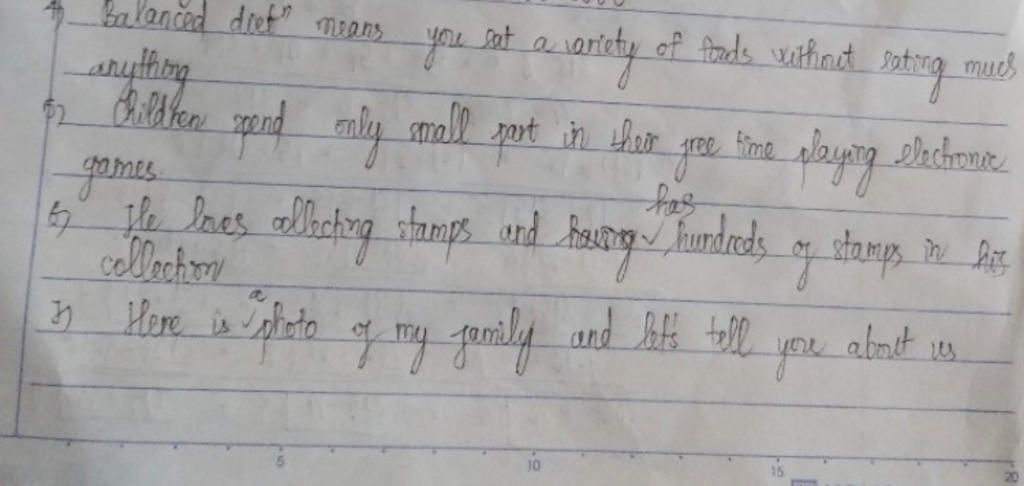 4) Balanced diet" means you eat a variety of foods without eating much
anything
5) Children spend only small part in their free time playing electronic
games.
has
6) He loves collecting stamps and having hundreds of stamps in his
collection
a
7) Here is photo of my family and let's tell you about us
5 10 15 20